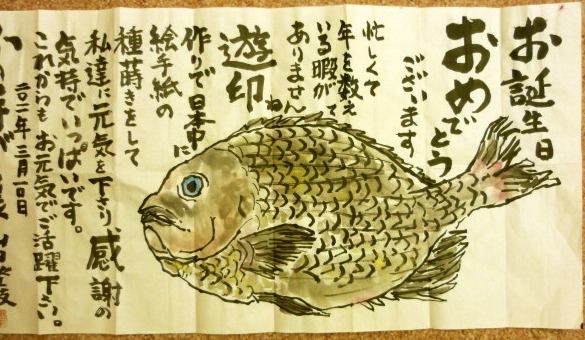 お誕生日
おめでとう
ございます
忙しくて
年を数え
いる暇がて
ありませんね
遊印
作りで日本中に
絵手紙の
種蒔きをして
私達に元気を下さり感謝の
気持でいっぱいです。
これからもお元気でご活躍下さい。
二〇一二年三月一〇日